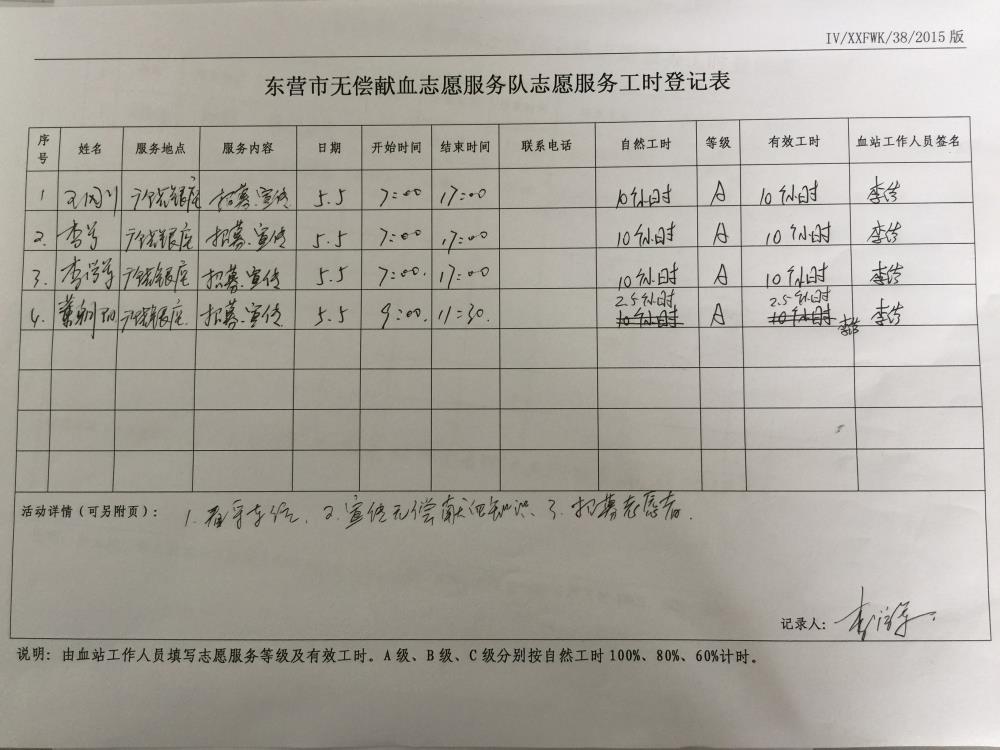 IV/XXFWK/38/2015 版
东营市无偿献血志愿服务队志愿服务工时登记表
序号 姓名 服务地点 服务内容 日期 开始时间 结束时间 联系电话 自然工时 等级 有效工时 血站工作人员签名
1 银座 招募.宣传 5.5 7:00 17:00 10小时 A 10小时
2. 银座 招募.宣传 5.5 7:00 17:00 10小时 A 10小时
3. 李学军 银座 招募.宣传 5.5 7:00. 17:00 10小时 A 10小时
2.5小时 2.5小时
4. 银座. 招募.宣传 5.5 9:00. 11:30. 10小时 A 10小时
活动详情（可另附页）： 1. 2.宣传无偿献血知识、3.招募志愿者.
记录人： 李学军.
说明: 由血站工作人员填写志愿服务等级及有效工时。A 级、B 级、C 级分别按自然工时 100%、80%、60%计时。